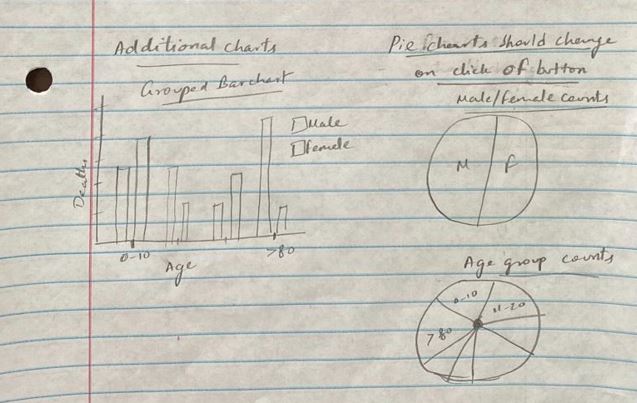 Additional charts
Grouped Barchart
Male
Female
Deaths
0-10
>80
Age
Pie charts should change
on click of button
Male/female counts
M
F
Age group counts
0-10
11-20
>80